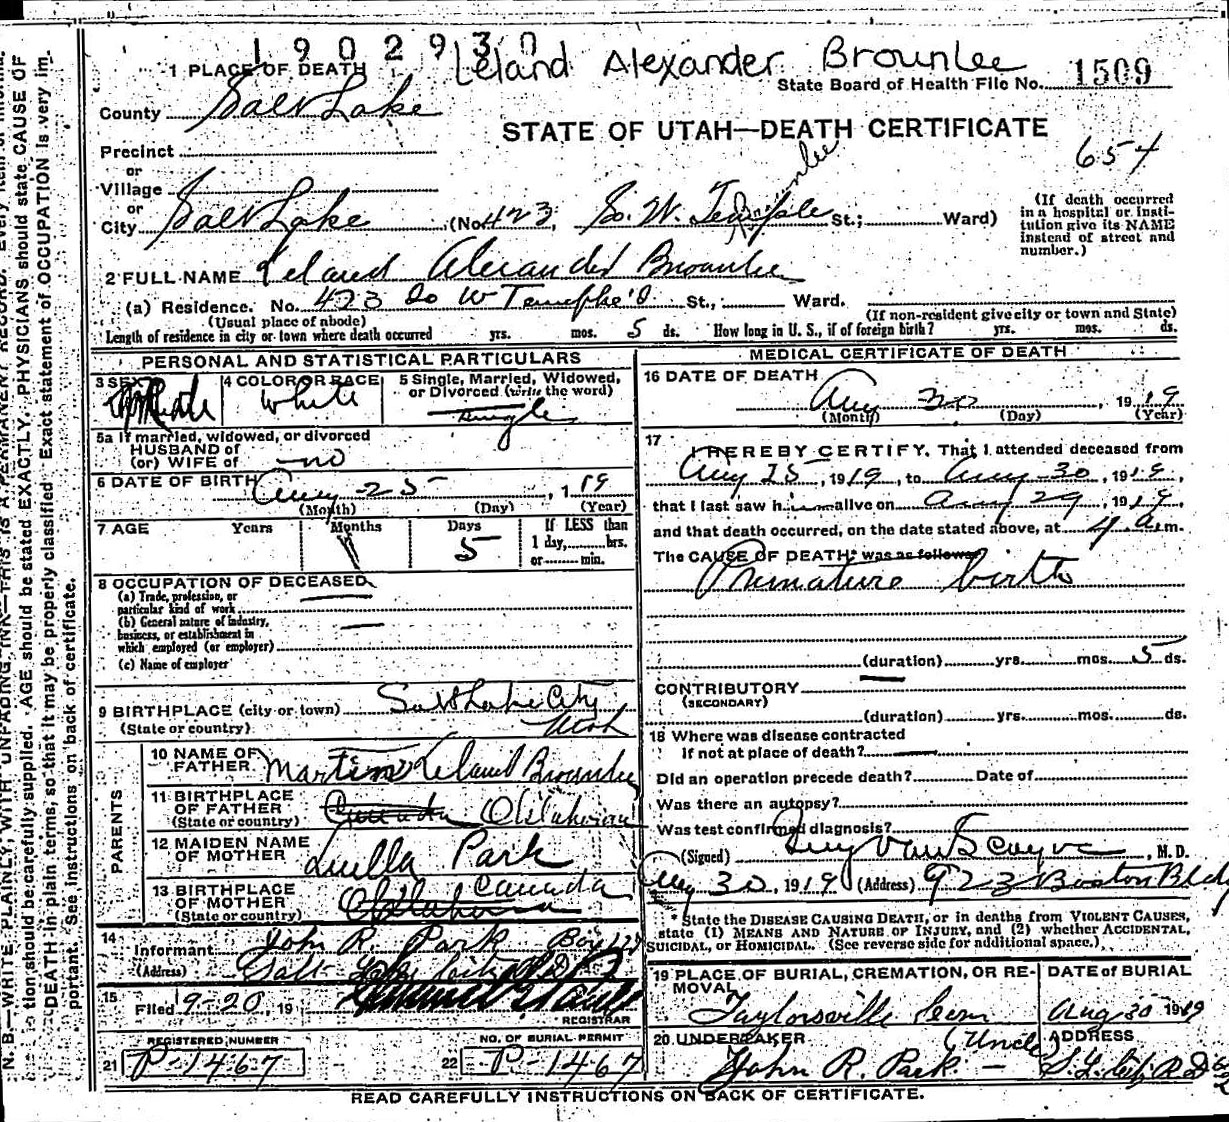 1902930
Leland Alexander Brownlee
1 PLACE OF DEATH
State Board of Health File No. 1509
County Salt Lake
STATE OF UTAH—DEATH CERTIFICATE
654
Precinct
or
Village
or
City Salt Lake (No. 423, So. W. Temple St.; Ward)
Brownlee
(If death occurred
in a hospital or insti-
tution give its NAME
instead of street and
number.)
2 FULL NAME Leland Alexander Brownlee
(a) Residence. No. 423 So W Temple St., Ward.
(Usual place of abode) (If non-resident give city or town and State)
Length of residence in city or town where death occurred yrs. mos. 5 ds. How long in U. S., if of foreign birth? yrs. mos. ds.
PERSONAL AND STATISTICAL PARTICULARS
3 SEX Male
4 COLOR OR RACE White
5 Single, Married, Widowed,
or Divorced (write the word)
Single
5a If married, widowed, or divorced
HUSBAND of
(or) WIFE of no
6 DATE OF BIRTH Aug 25, 1919
(Month) (Day) (Year)
7 AGE Years Months Days If LESS than
5 1 day, hrs.
or min.
8 OCCUPATION OF DECEASED
(a) Trade, profession, or
particular kind of work
(b) General nature of industry,
business, or establishment in
which employed (or employer)
(c) Name of employer
9 BIRTHPLACE (city or town) Salt Lake City
(State or country) Utah
PARENTS
10 NAME OF
FATHER Martin Leland Brownlee
11 BIRTHPLACE
OF FATHER Canada Oklahoma
(State or country)
12 MAIDEN NAME
OF MOTHER Luella Park
13 BIRTHPLACE
OF MOTHER Canada
(State or country) Oklahoma
14
Informant John R. Park Box
(Address) Salt Lake City
15
Filed 9-20, 19
REGISTRAR
REGISTERED NUMBER
21 P-1467
NO. OF BURIAL PERMIT
22 P-1467
MEDICAL CERTIFICATE OF DEATH
16 DATE OF DEATH
Aug 30, 1919
(Month) (Day) (Year)
17
I HEREBY CERTIFY, That I attended deceased from
Aug 25, 1919, to Aug 30, 1919,
that I last saw him alive on Aug 29, 1919,
and that death occurred, on the date stated above, at 4 a.m.
The CAUSE OF DEATH* was as follows:
Premature birth
(duration) yrs. mos. 5 ds.
CONTRIBUTORY
(SECONDARY)
(duration) yrs. mos. ds.
18 Where was disease contracted
if not at place of death?
Did an operation precede death? Date of
Was there an autopsy?
Was test confirmed diagnosis?
(Signed) Guy Van Scoyoc, M.D.
Aug 30, 1919 (Address) 923 Boston Bldg
* State the DISEASE CAUSING DEATH, or in deaths from VIOLENT CAUSES,
state (1) MEANS AND NATURE OF INJURY, and (2) whether ACCIDENTAL,
SUICIDAL, or HOMICIDAL. (See reverse side for additional space.)
19 PLACE OF BURIAL, CREMATION, OR RE-
MOVAL
Taylorsville Cem
DATE of BURIAL
Aug 30 1919
20 UNDERTAKER (Uncle)
John R. Park
ADDRESS
S. L. City R D
READ CAREFULLY INSTRUCTIONS ON BACK OF CERTIFICATE.
N. B.—WRITE PLAINLY, WITH UNFADING INK—THIS IS A PERMANENT RECORD. Every item of informa-
tion should be carefully supplied. AGE should be stated EXACTLY. PHYSICIANS should state CAUSE OF
DEATH in plain terms, so that it may be properly classified. Exact statement of OCCUPATION is very im-
portant. See instructions on back of certificate.